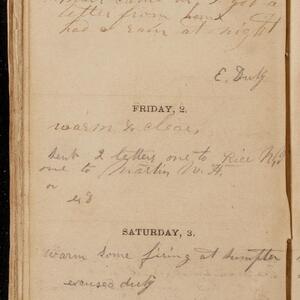 letter from home
had a rain at night
E. Duty
FRIDAY, 2.
warm & clear,
sent 2 letters one to Rice
one to Martin W. H.
or
SATURDAY, 3.
warm some firing at Sumpter
excused duty